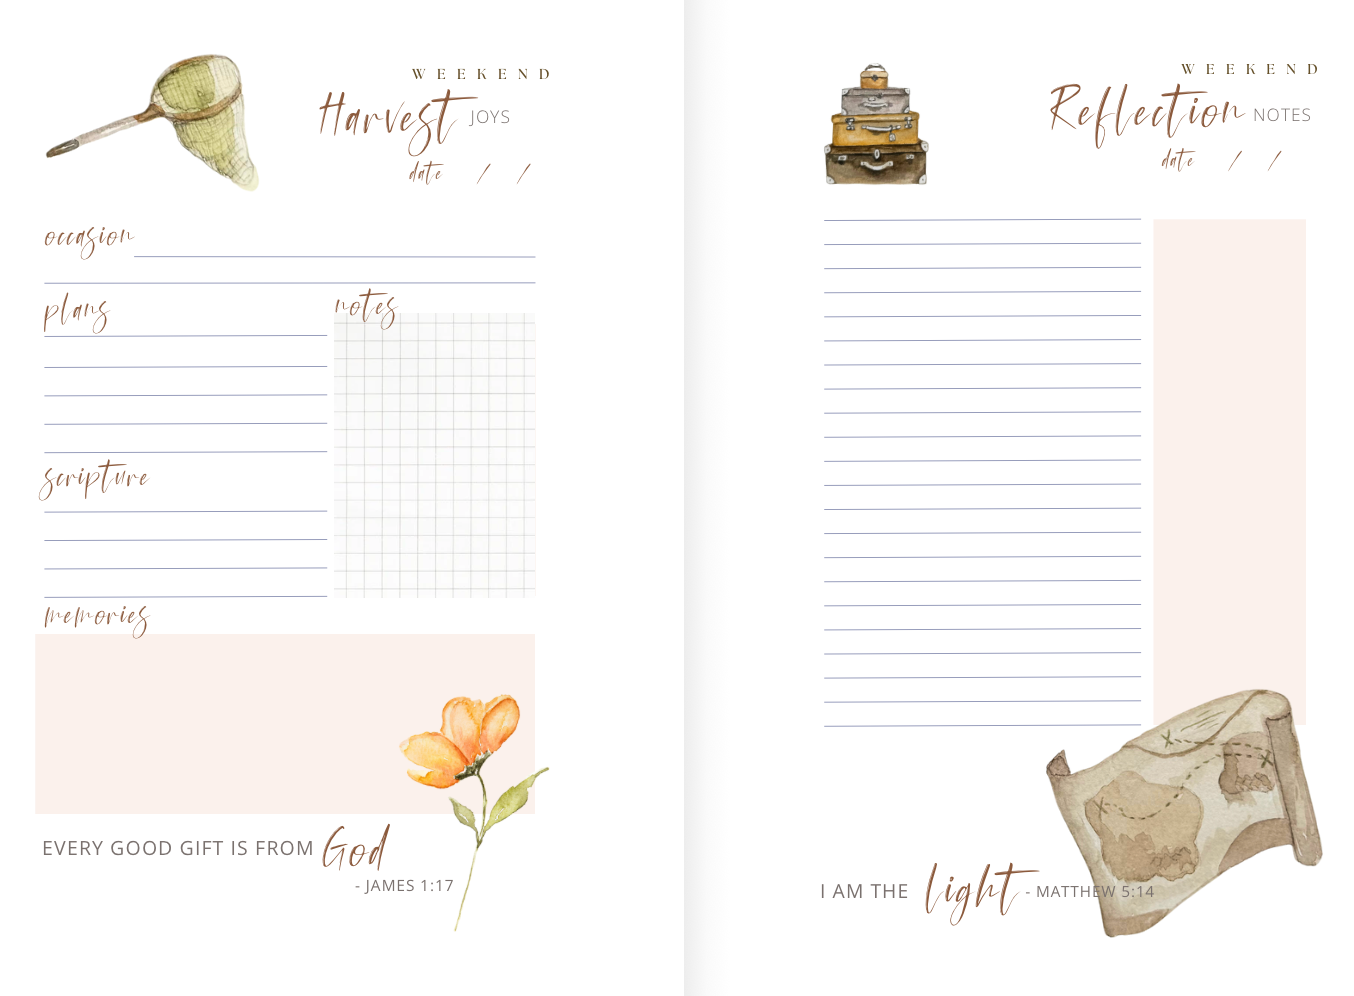 WEEKEND
Harvest JOYS
date / /
occasion
plans
notes
scripture
memories
EVERY GOOD GIFT IS FROM God
- JAMES 1:17
WEEKEND
Reflection NOTES
date / /
I AM THE light - MATTHEW 5:14